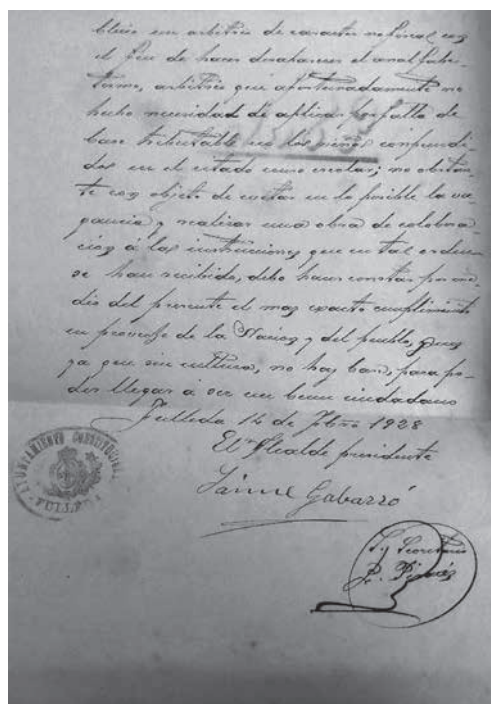 blecer un arbitrio de caracter no fiscal con
el fin de hacer desaparecer el analfabe-
tismo, arbitrio que afortunadamente no
hecho necesidad de aplicar por falta de
base tributable en los niños comprendi-
dos en el citado censo escolar; no obstan-
te con objeto de evitar en lo posible la va
gancia y realizar una obra de colobora-
ción á las instrucciones que en tal orden
se han recibido, debo hacer constar por me-
dio del presente el mas exacto cumplimiento
en provecho de la Nacion y del pueblo, pues
ya que sin cultura, no hay base, para po-
der llegar á ser un buen ciudadano
Fulleda 14 de Fbro 1928
El Alcalde presidente
Jaime Gabarró
AYUNTAMIENTO CONSTITUCIONAL
FULLEDA
Secretario